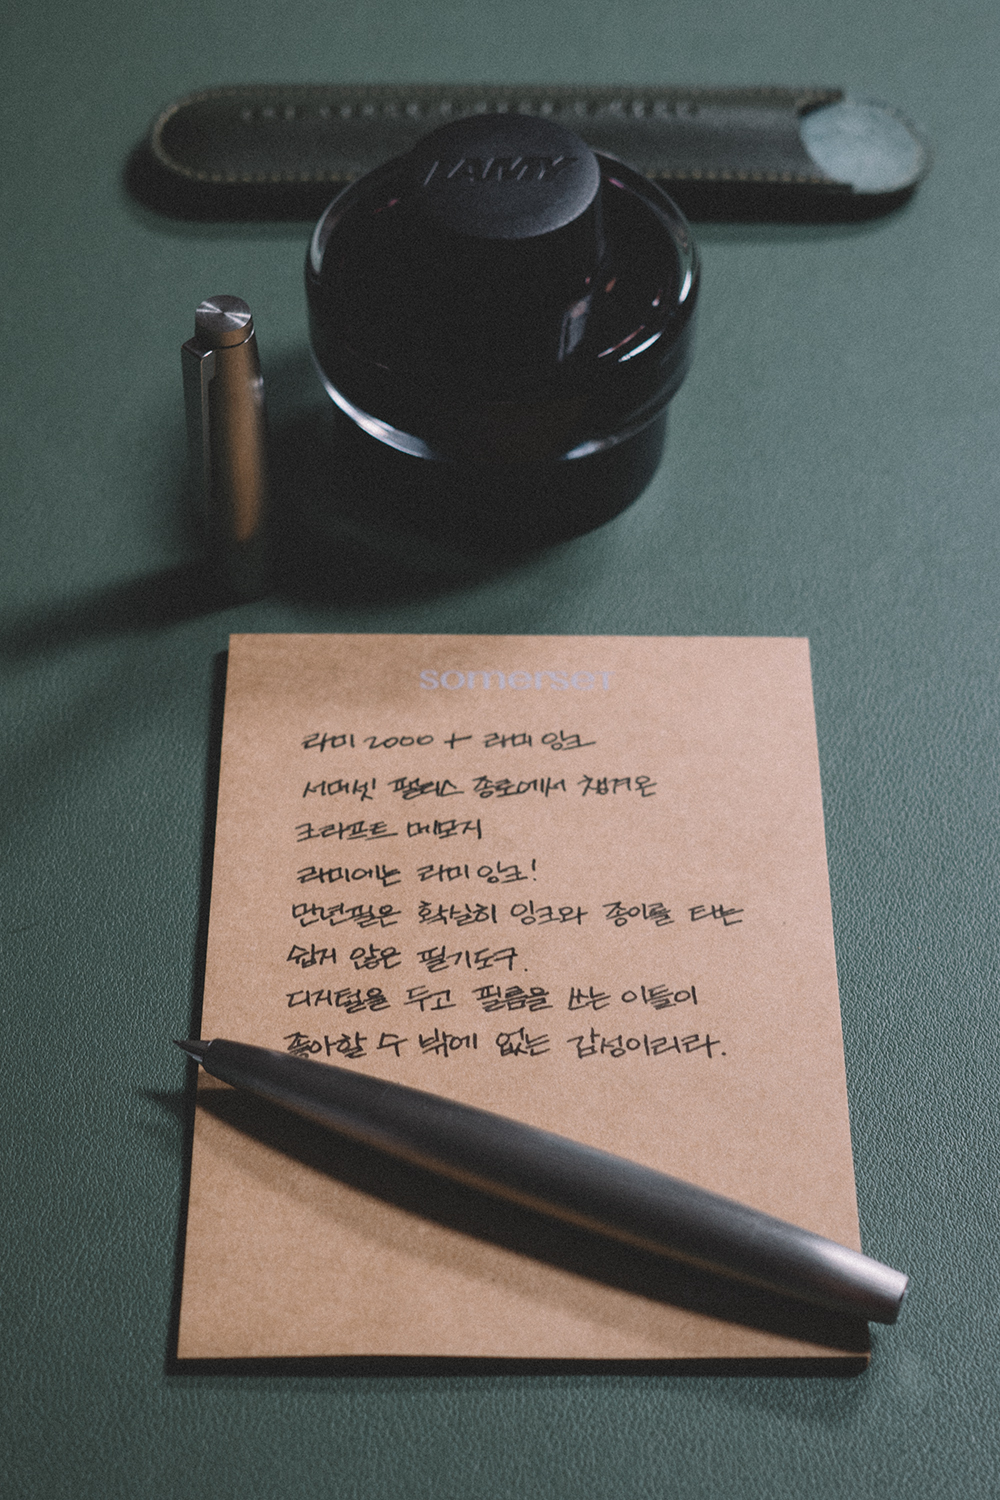 LAMY
somerset
라미 2000 + 라미 잉크
서머셋 팰리스 종로에서 챙겨온
크라프트 메모지
라미에는 라미 잉크!
만년필은 확실히 잉크와 종이를 타는
쉽지 않은 필기도구.
디지털을 두고 필름을 쓰는 이들이
좋아할 수 밖에 없는 감성이리라.